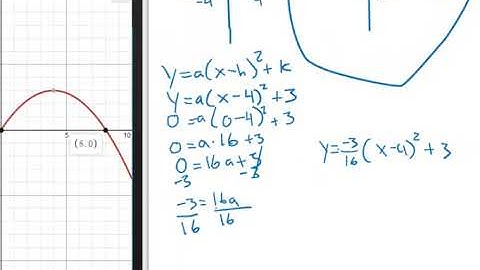 -4 4
y=a(x-h)²+k
y=a(x-4)²+3
0=a(0-4)²+3
0=a·16+3
0=16a+3
-3 -3
-3=16a
16 16
y=-3/16(x-4)²+3
0 5 10
(8,0)